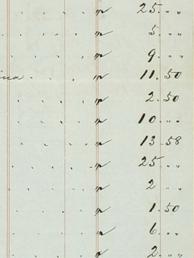 " 25 " "
" 5 " "
" 9 " "
" 11 50
" 2 50
" 10 " "
" 13 58
" 25 " "
" 2 " "
" 1 50
" 6 " "
" 2 " "